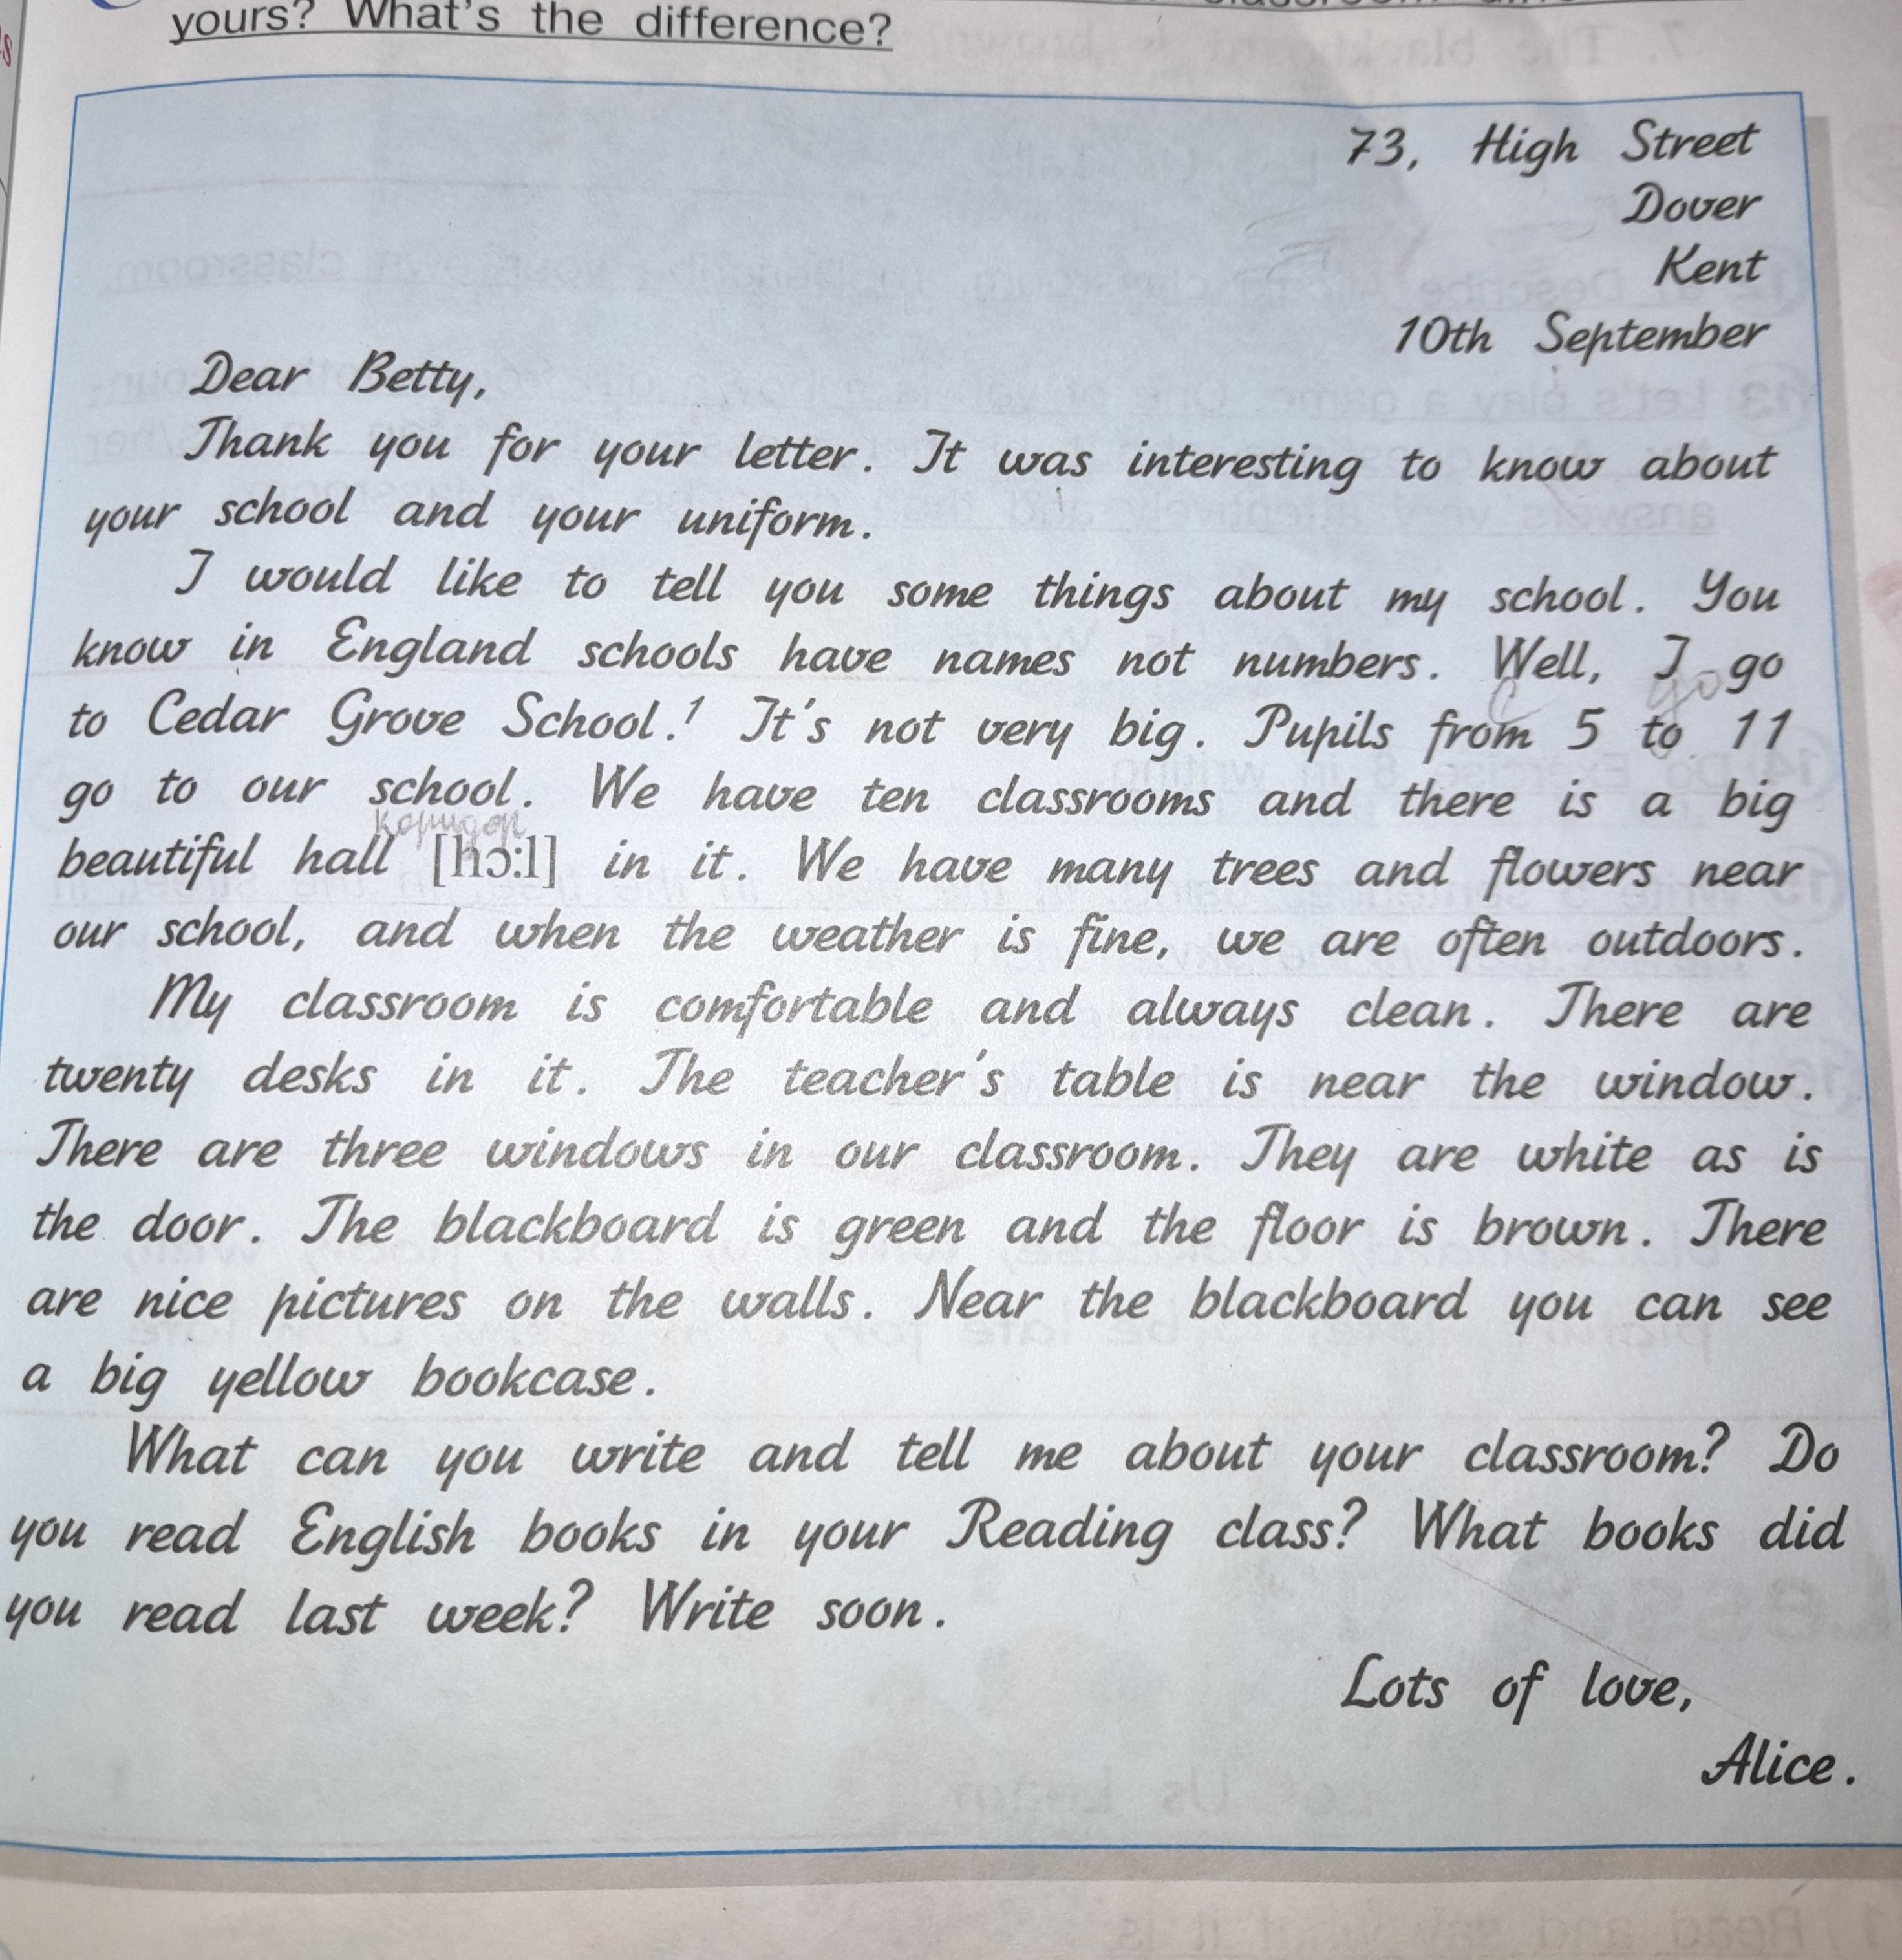 yours? What's the difference?
73, High Street
Dover
Kent
10th September
Dear Betty,
Thank you for your letter. It was interesting to know about
your school and your uniform.
I would like to tell you some things about my school. You
know in England schools have names not numbers. Well, I go
to Cedar Grove School.¹ It's not very big. Pupils from 5 to 11
с до
go to our school. We have ten classrooms and there is a big
коридор
beautiful hall [hɔ:l] in it. We have many trees and flowers near
our school, and when the weather is fine, we are often outdoors.
My classroom is comfortable and always clean. There are
twenty desks in it. The teacher's table is near the window.
There are three windows in our classroom. They are white as is
the door. The blackboard is green and the floor is brown. There
are nice pictures on the walls. Near the blackboard you can see
a big yellow bookcase.
What can you write and tell me about your classroom? Do
you read English books in your Reading class? What books did
you read last week? Write soon.
Lots of love,
Alice.